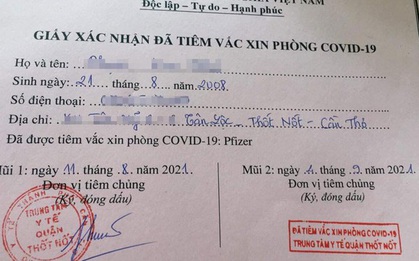 VIỆT NAM
Độc lập – Tự do – Hạnh phúc
GIẤY XÁC NHẬN ĐÃ TIÊM VẮC XIN PHÒNG COVID-19
Họ và tên:
Sinh ngày: 21 tháng 8 năm 2008
Số điện thoại:
Địa chỉ: Tân Lộc - Thốt Nốt - Cần Thơ
Đã được tiêm vắc xin phòng COVID-19: Pfizer
Mũi 1: ngày 11 tháng 8 2021 Mũi 2: ngày 4 tháng 9 2021
Đơn vị tiêm chủng Đơn vị tiêm chủng
(Ký, đóng dấu) (Ký, đóng dấu)
TRUNG TÂM
Y TẾ
QUẬN
THỐT NỐT
ĐÃ TIÊM VẮC XIN PHÒNG COVID-19
TRUNG TÂM Y TẾ QUẬN THỐT NỐT